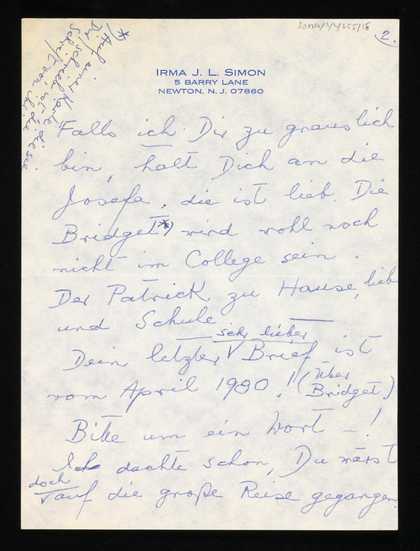 2.
*) Auf einer
IRMA J. L. SIMON
5 BARRY LANE
NEWTON, N. J. 07860
Falls ich Dir zu grauslich
bin, halt Dich an die
Josefa, die ist lieb. Die
Bridget *) wird wohl noch
nicht im College sein.
Der Patrick zu Hause, lieb
und Schule
Dein letzter sehr lieber Brief ist
vom April 1980! (über
Bridget)
Bitte um ein Wort – !
Ich dachte schon, Du wärst
doch auf die große Reise gegangen